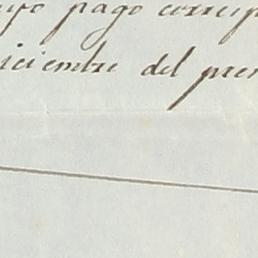 cuyo pago corresp
iciembre del pre